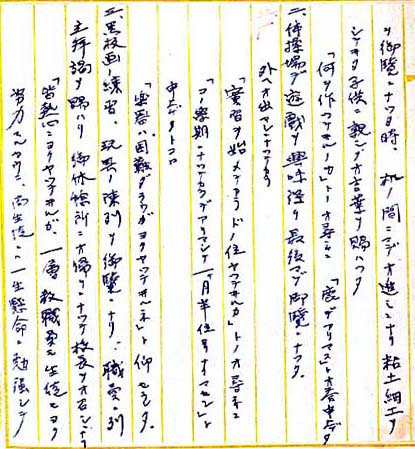 ヲ御覧ニナツタ時、机ノ間ニマデオ進ミニナリ粘土細工ヲ
シテヰタ子供ニ親シクオ言葉ヲ賜ハツタ
「何ヲ作ツテヰルノカ」トノオ尋ネニ 「鹿デアリマス」トオ答申シタ
二、体操場デ遊戯ヲ興味深ク最後マデ御覧ニナツタ。
外ヘオ出マシニナツテカラ
「實習ヲ始メテカラドノ位ヤツテヰルカ」トノオ尋ネニ
「コノ學期ニナツテカラデアリマシテ一ケ月半位 ト
申上ゲタトコロ
ハ困難ダラウガヨクヤツテヰルネ」ト仰セラレタ。
三、黒板画ノ練習、玩具ノ陳列ヲ御覧ニナリ、職員ニ列
立拝謁ヲ賜ハリ御休憩所ニオ帰リニナツテ校長ヲオ召シニナリ
「皆熱心ニヨクヤツテヰルガ、一層教職員モ生徒モヨク
努力スルヤウニ、尚生徒ハ一生懸命ニ勉強シテ